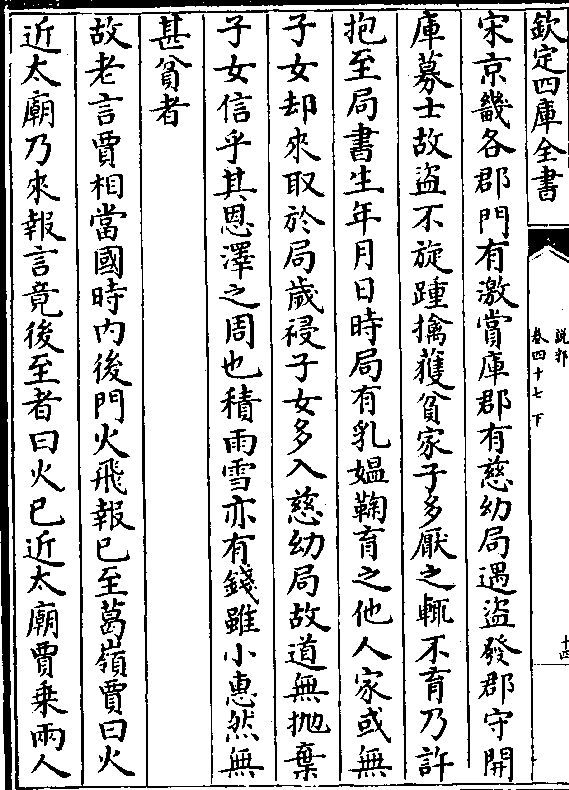 欽定四庫全書
說郛
卷四十七下
十四
宋京畿各郡門有激賞庫郡有慈幼局遇盜發郡守開
庫募士故盜不旋踵擒獲貧家子多厭之輒不育乃許
抱至局書生年月日時局有乳媼鞠育之他人家或無
子女却來取於局歲祲子女多入慈幼局故道無抛棄
子女信乎其恩澤之周也積雨雪亦有錢雖小惠然無
甚貧者
故老言賈相當國時内後門火飛報已至葛嶺賈曰火
近太廟乃來報言竟後至者曰火已近太廟賈乗兩人